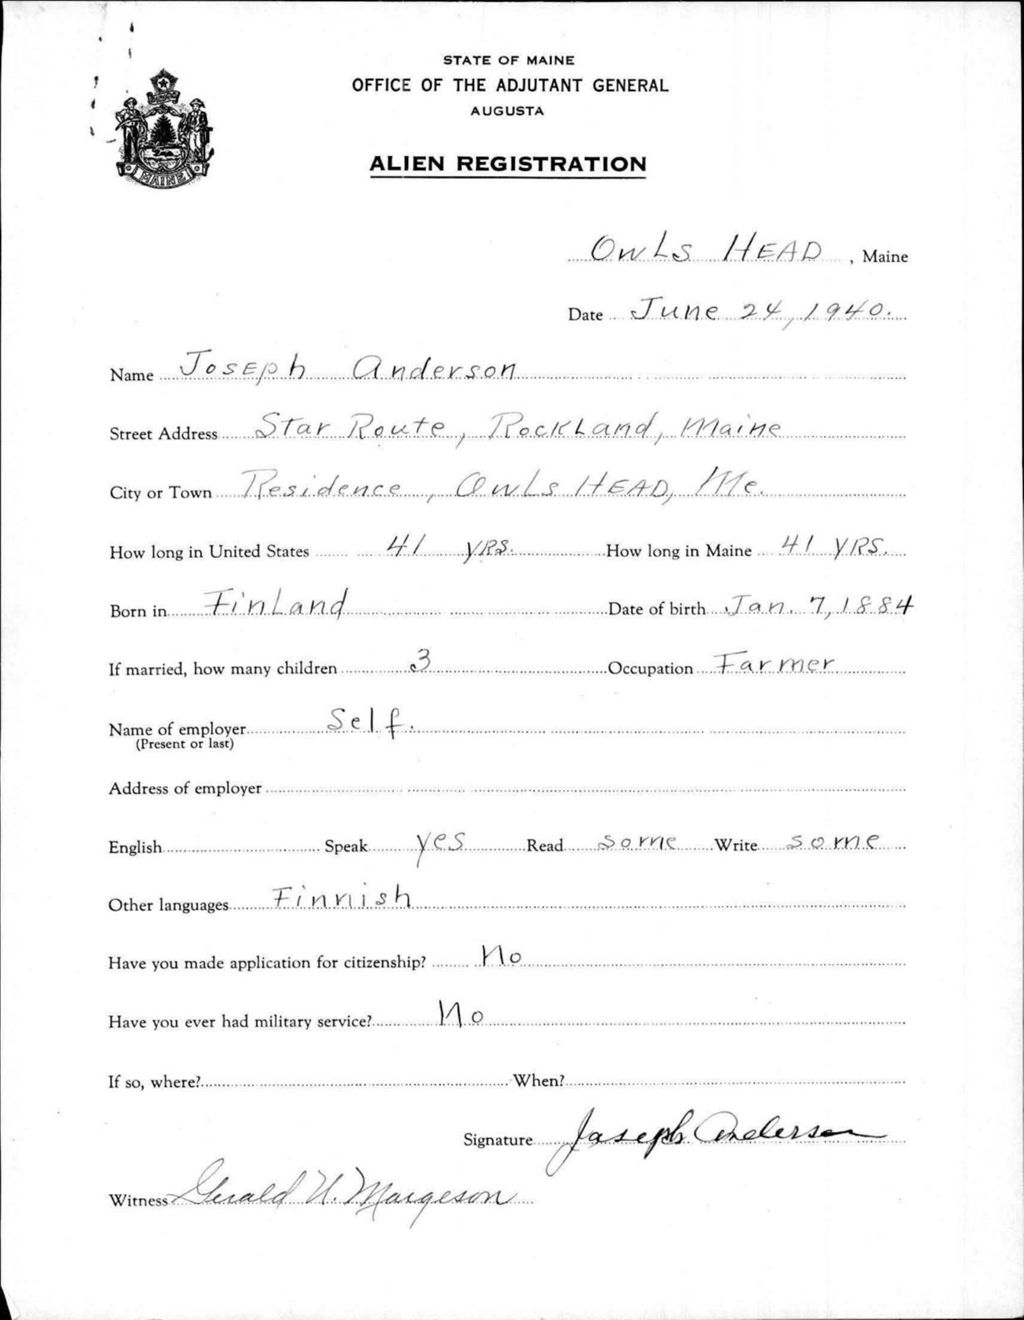 STATE OF MAINE
OFFICE OF THE ADJUTANT GENERAL
AUGUSTA
ALIEN REGISTRATION
MAINE
Owls Head, Maine
Date June 24, 1940.
Name Joseph Anderson
Street Address Star Route, Rockland, Maine
City or Town Residence, Owls Head, Me.
How long in United States 41 yrs. How long in Maine 41 yrs.
Born in Finland Date of birth Jan. 7, 1884
If married, how many children 3 Occupation Farmer
Name of employer Self.
(Present or last)
Address of employer
English Speak yes Read some Write some
Other languages Finnish
Have you made application for citizenship? No
Have you ever had military service? No
If so, where? When?
Signature Joseph Anderson
Witness Gerald U. Margeson